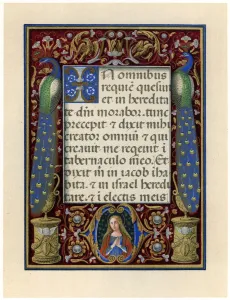 In omnibus
requiē quesiui
et in heredita
te dm̄ morabor. tunc
precepit & dixit mihi
creator omniū & qui
creauit me reqēit i
tabernaculo meo. Et
dixit m̄ in iacob iha
bita. & in israel heredi
tare. & i electis meis